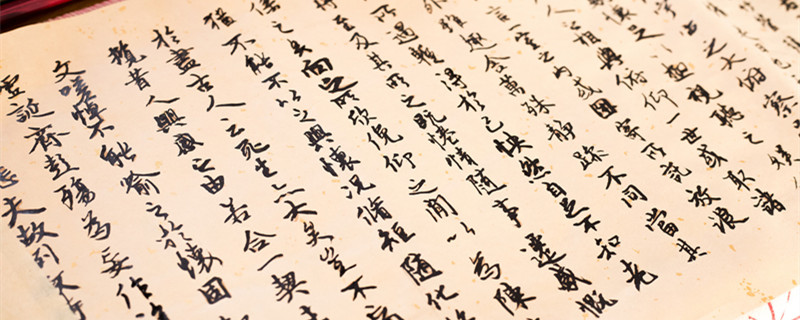 之大俯察
極視聽之娛
人之相與俯仰一世或取諸
言一室之內或因寄所託放浪
外雖趣舍萬殊靜躁不同當其
所遇蹔得於己快然自足不知老
至及其所之既惓情隨事遷感慨
係之矣向之所欣俛仰之閒以為陳
猶不能不以之興懷況脩短隨化
於盡古人云死生亦大矣豈不痛
覽昔人興感之由若合一契
文嗟悼不能喻之於懷固
虛誕齊彭殤為妄作
悲夫故列